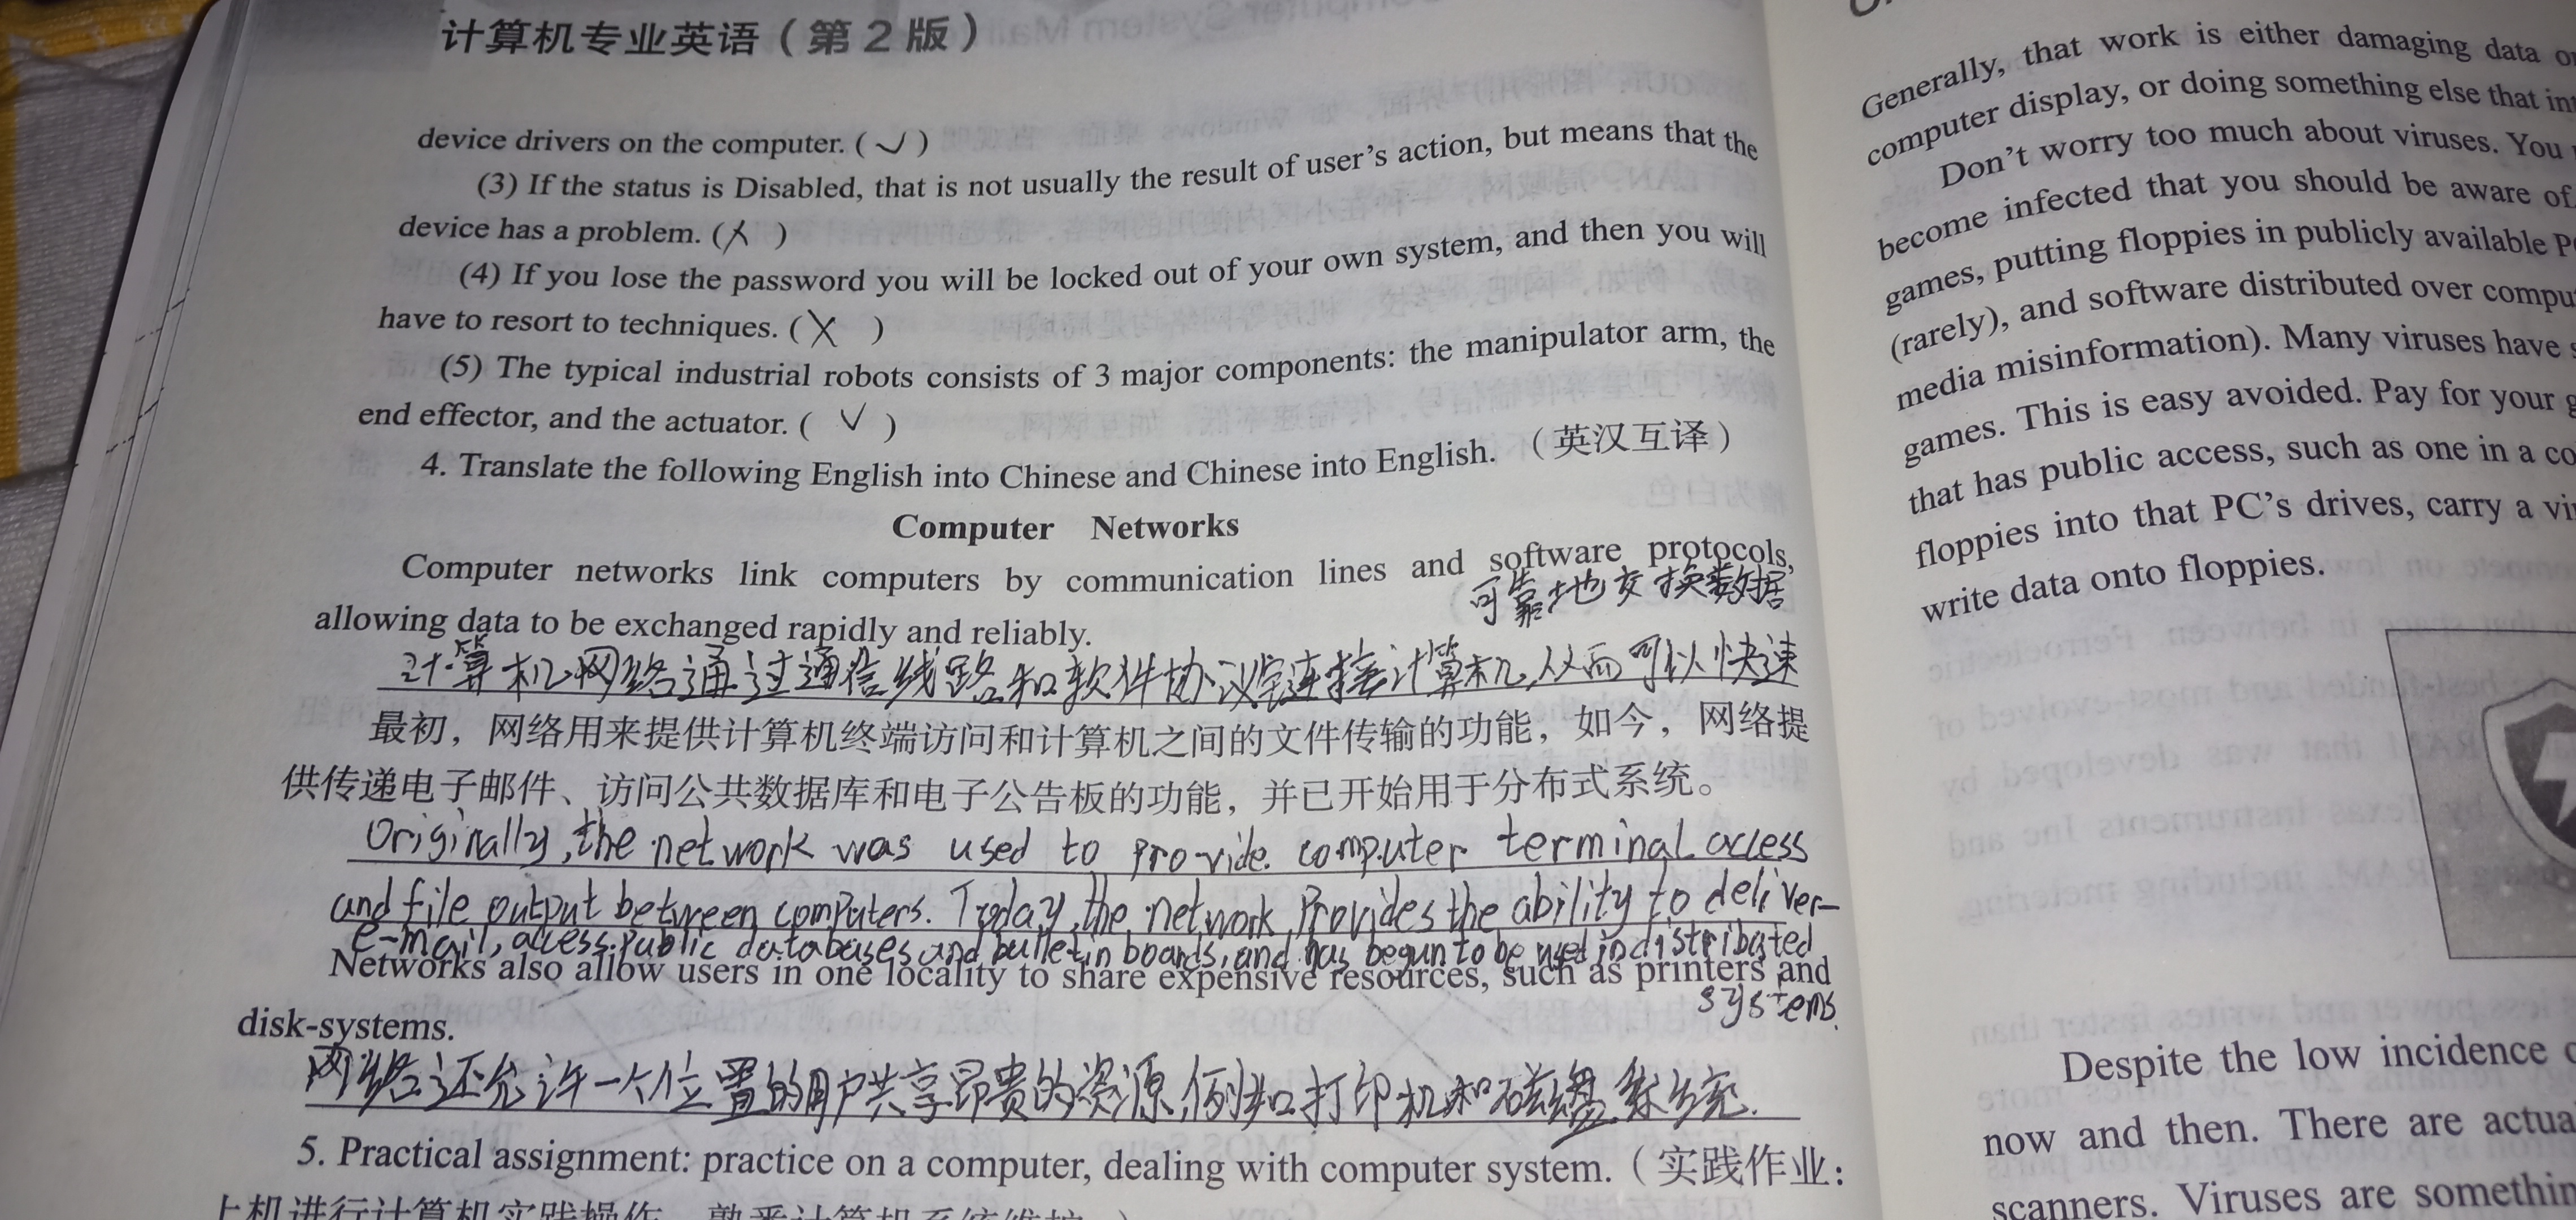 计算机专业英语（第2版）
device drivers on the computer. ( ✓ )
(3) If the status is Disabled, that is not usually the result of user's action, but means that the
device has a problem. ( X )
(4) If you lose the password you will be locked out of your own system, and then you will
have to resort to techniques. ( X )
(5) The typical industrial robots consists of 3 major components: the manipulator arm, the
end effector, and the actuator. ( ✓ )
4. Translate the following English into Chinese and Chinese into English. （英汉互译）
Computer Networks
Computer networks link computers by communication lines and software protocols,
可靠地交换数据
allowing data to be exchanged rapidly and reliably.
计算机网络通过通信线路和软件协议连接计算机,从而可以快速
最初，网络用来提供计算机终端访问和计算机之间的文件传输的功能，如今，网络提
供传递电子邮件、访问公共数据库和电子公告板的功能，并已开始用于分布式系统。
Originally, the network was used to provide computer terminal access
and file output between computers. Today, the network provides the ability to deliver
e-mail, access public databases and bulletin boards, and has begun to be used in distributed
Networks also allow users in one locality to share expensive resources, such as printers and
systems.
disk-systems.
网络还允许一个位置的用户共享昂贵的资源,例如打印机和磁盘系统.
5. Practical assignment: practice on a computer, dealing with computer system.（实践作业：
上机进行计算机实践操作，熟悉计算机系统维护。）
Generally, that work is either damaging data
computer display, or doing something else that
Don't worry too much about viruses. You
become infected that you should be aware of
games, putting floppies in publicly available
(rarely), and software distributed over
media misinformation). Many viruses have
games. This is easy avoided. Pay for your
that has public access, such as one in a
floppies into that PC's drives, carry a
write data onto floppies.
Despite the low incidence
now and then. There are
scanners. Viruses are